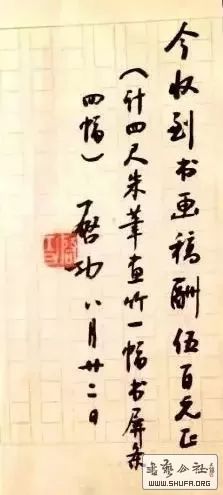 今收到书画稿酬伍百元正
（计四尺朱笔画竹一幅书屏条
四幅）
启功 八月廿二日
书艺公社
WWW.SHUFA.ORG